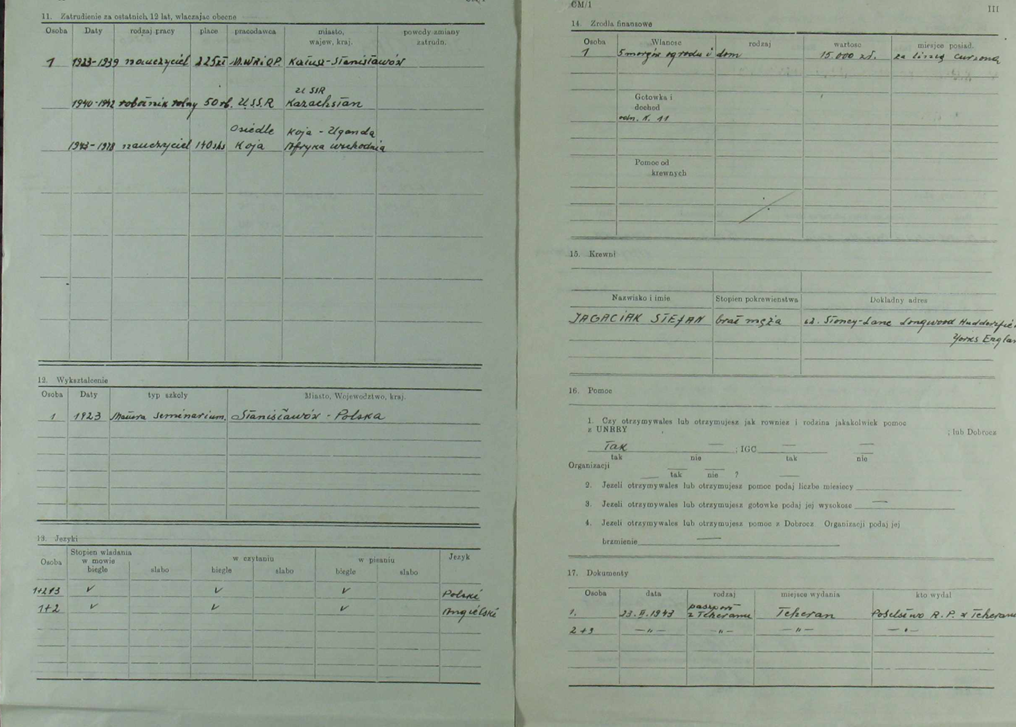 11. Zatrudienie za ostatnich 12 lat, wlaczajac obecne
Osoba Daty rodzaj pracy place pracodawca miasto, wojew. kraj. powody zmiany zatrudn.
1 1923-1939 nauczyciel 225 zł M.W.R.i O.P. Kałusz-Stanisławów
1940-1942 robotnik rolny 50 rb. U.S.S.R. Kazachstan
1943-1948 nauczyciel 140 shs Osiedle Koja Koja - Uganda Afryka wschodnia
12. Wyksztalcenie
Osoba Daty typ szkoly Miasto, Wojewodztwo, kraj.
1 1923 Matura Seminarium, Stanisławów - Polska
13. Jezyki
Osoba Stopien wladania w mowie w czytaniu w pisaniu Jezyk
biegle slabo biegle slabo biegle slabo
1+2+3 v v v Polski
1+2 v v v Angielski
CM/1 III
14. Zrodla finansowe
Osoba Wlasnosc rodzaj wartosc miejsce posiad.
1 5 morgów ogrodu i dom 15.000 zł. za linią curzona
Gotowka i dochod
Pomoc od krewnych
15. Krewni
Nazwisko i imie Stopien pokrewienstwa Dokladny adres
JAGACIAK STEFAN brat męża Stoney-Lane Longwood
Yorks
16. Pomoc
1. Czy otrzymywales lub otrzymujesz jak rowniez i rodzina jakakolwiek pomoc
z UNRRY ; lub Dobrocz
Tak — ; IGC — —
tak nie tak nie
Organizacji — — ? —
tak nie
2. Jezeli otrzymywales lub otrzymujesz pomoc podaj liczbe miesiecy
3. Jezeli otrzymywales lub otrzymujesz gotowke podaj jej wysokosc —
4. Jezeli otrzymywales lub otrzymujesz pomoc z Dobrocz Organizacji podaj jej
brzmienie —
17. Dokumenty
Osoba data rodzaj miejsce wydania kto wydal
1. 1943 paszport z Teheranu Teheran Poselstwo R.P. w Teheranie
2+3 —„— —„— —„— —„—